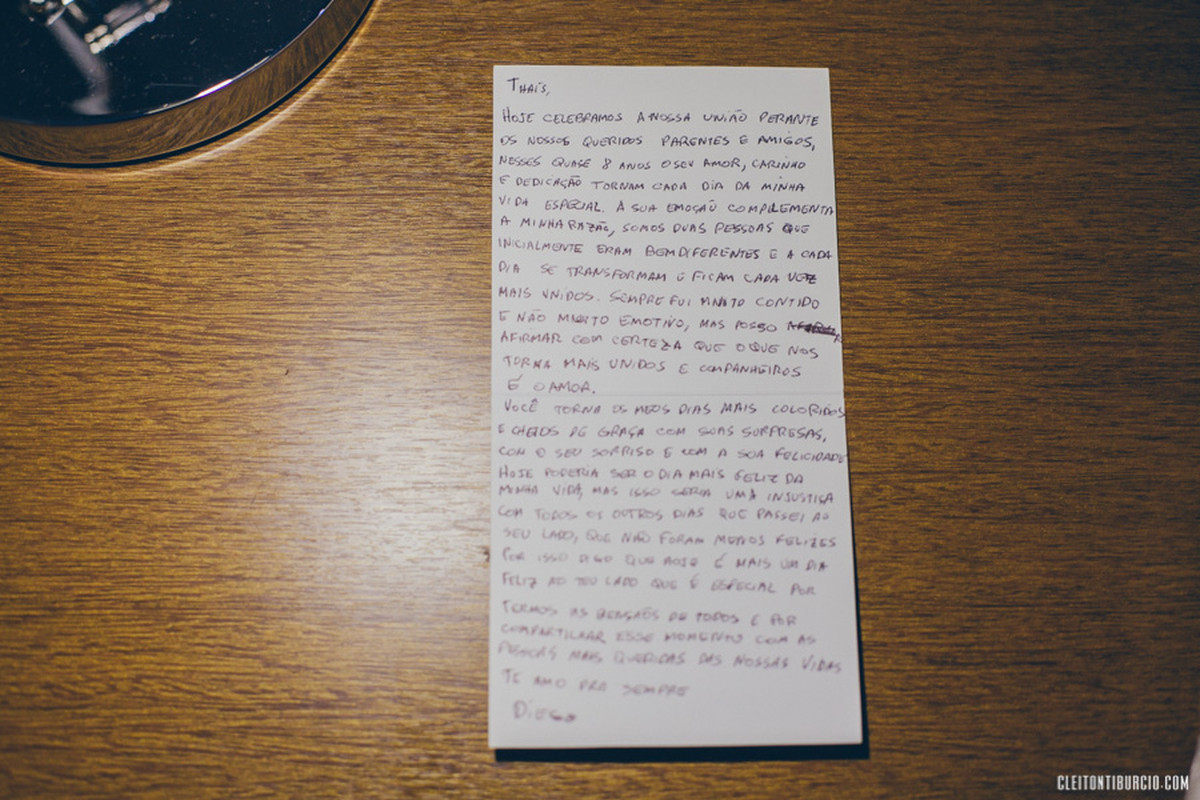 THAÍS,
HOJE CELEBRAMOS A NOSSA UNIÃO PERANTE
OS NOSSOS QUERIDOS PARENTES E AMIGOS,
NESSES QUASE 8 ANOS O SEU AMOR, CARINHO
E DEDICAÇÃO TORNAM CADA DIA DA MINHA
VIDA ESPECIAL. A SUA EMOÇÃO COMPLEMENTA
A MINHA RAZÃO, SOMOS DUAS PESSOAS QUE
INICIALMENTE ERAM BEM DIFERENTES E A CADA
DIA SE TRANSFORMAM E FICAM CADA VEZ
MAIS UNIDOS. SEMPRE FUI MUITO CONTIDO
E NÃO MUITO EMOTIVO, MAS POSSO
AFIRMAR COM CERTEZA QUE O QUE NOS
TORNA MAIS UNIDOS E COMPANHEIROS
É O AMOR.
VOCÊ TORNA OS MEUS DIAS MAIS COLORIDOS
E CHEIOS DE GRAÇA COM SUAS SURPRESAS,
COM O SEU SORRISO E COM A SUA FELICIDADE
HOJE PODERIA SER O DIA MAIS FELIZ DA
MINHA VIDA, MAS ISSO SERIA UMA INJUSTIÇA
COM TODOS OS OUTROS DIAS QUE PASSEI AO
SEU LADO, QUE NÃO FORAM MENOS FELIZES
POR ISSO DIGO QUE HOJE É MAIS UM DIA
FELIZ AO TEU LADO QUE É ESPECIAL POR
TERMOS AS BENÇÃES DE TODOS E POR
COMPARTILHAR ESSE MOMENTO COM AS
PESSOAS MAIS QUERIDAS DAS NOSSAS VIDAS
TE AMO PRA SEMPRE
DIEGO
CLEITONTIBURCIO.COM